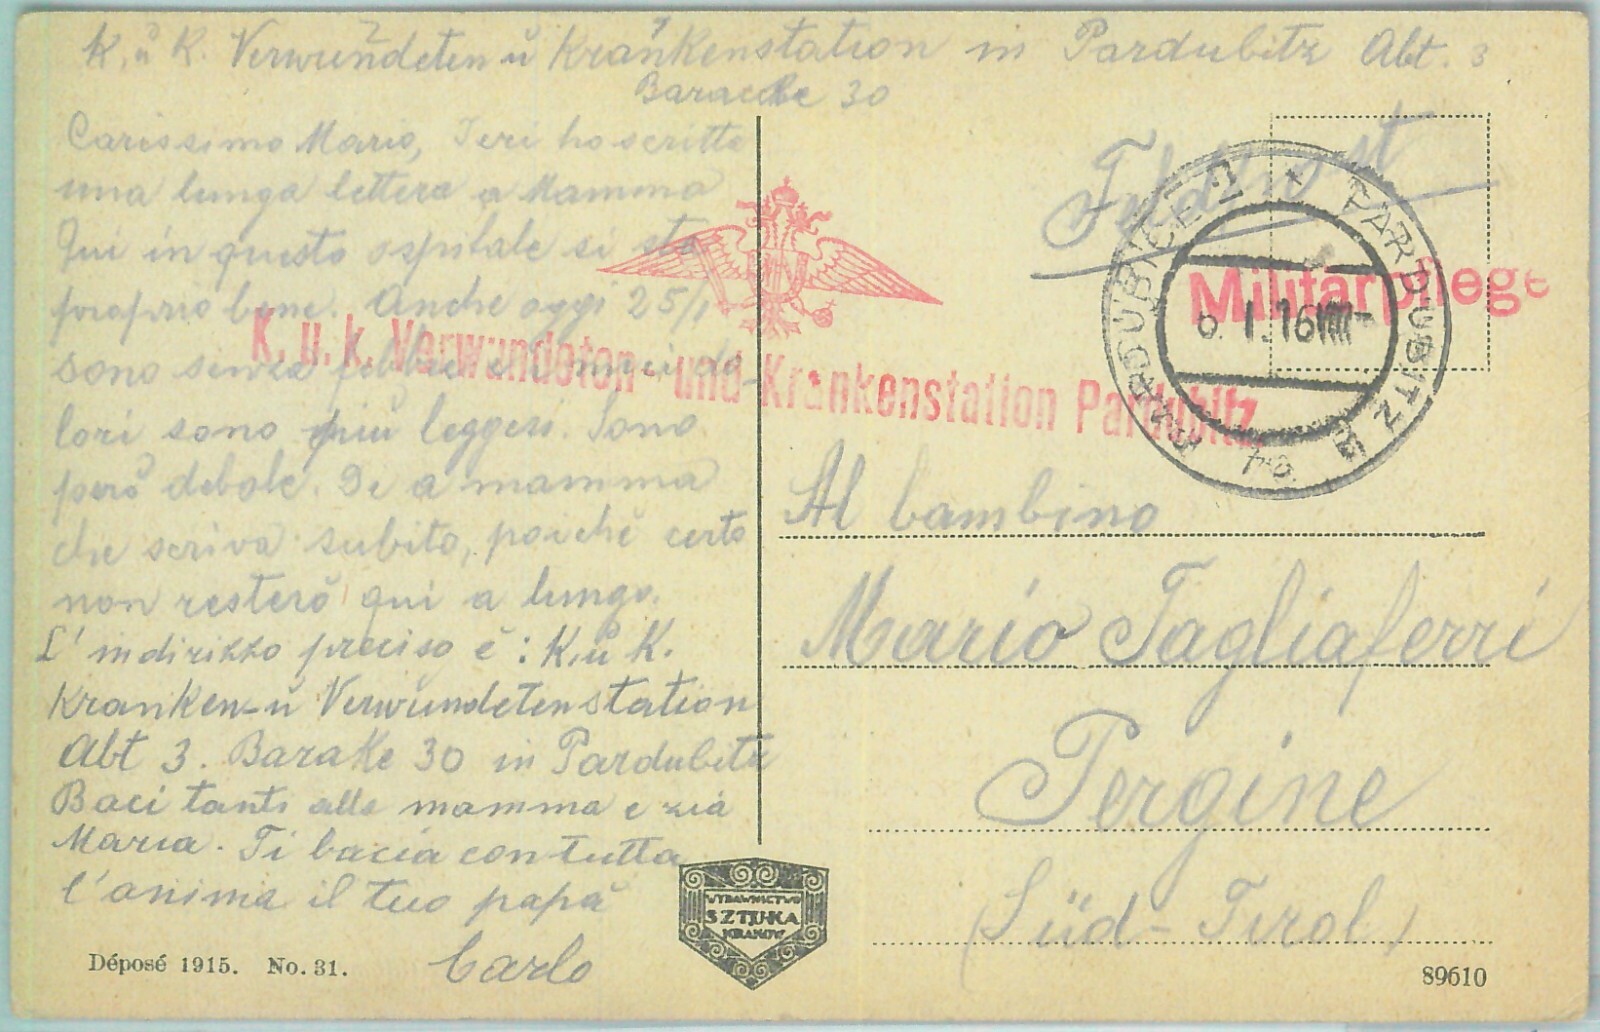 K. u K. Verwundeten u Krankenstation in Pardubitz Abt. 3
Baracke 30
Carissimo Mario, Ieri ho scritto
una lunga lettera a Mamma
Qui in questo ospitale si sta
proprio bene. Anche oggi 25/1
sono senza febbre e i miei do-
lori sono più leggeri. Sono
però debole. Di a mamma
che scriva subito, poichè certo
non resterò qui a lungo.
L'indirizzo preciso è: K. u K.
Kranken- u Verwundetenstation
Abt 3. Barake 30 in Pardubitz
Baci tanti alla mamma e zia
Maria. Ti bacia con tutta
l'anima il tuo papà
Carlo
Feldpost
Militärpflege
K. u. k. Verwundeten- und Krankenstation Pardubitz.
PARDUBICE 2 * PARDUBITZ
6. I. 16
Al bambino
Mario Tagliaferri
Pergine
(Süd-Tirol)
WYDAWNICTWO
SZTUKA
KRAKÓW
Déposé 1915. No. 31.
89610